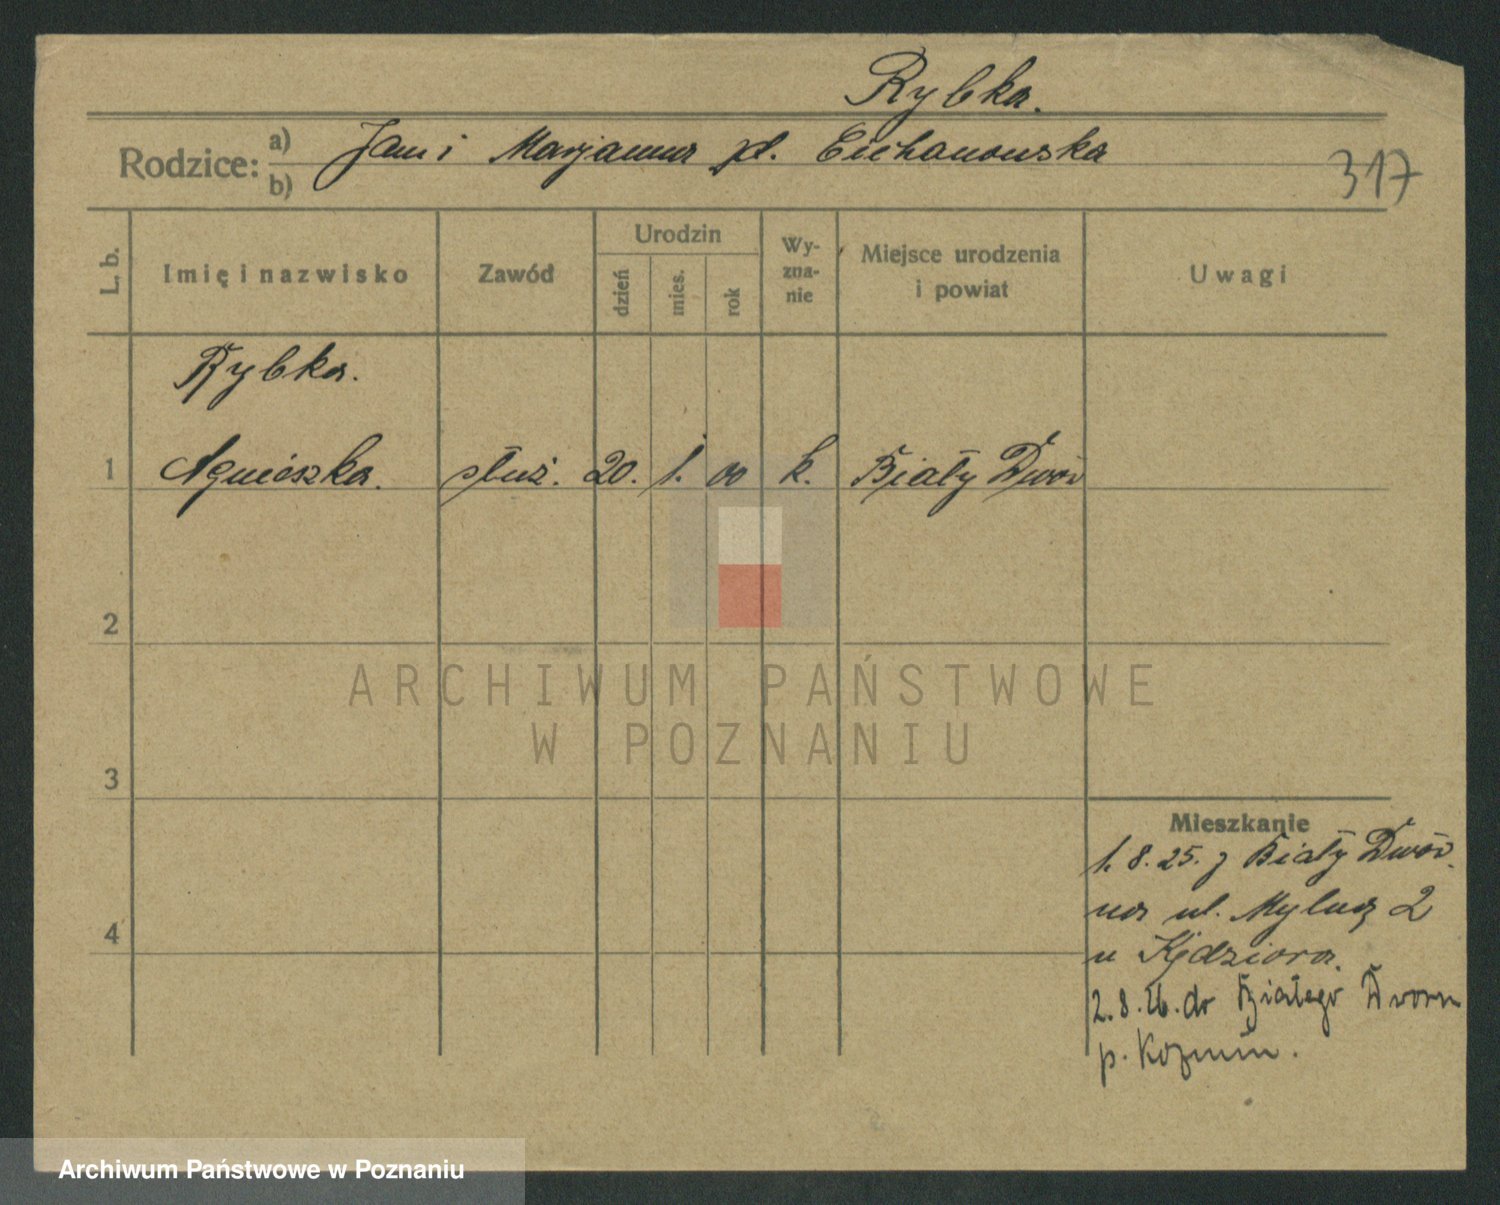 Rybka.
Rodzice: a) Jan i Marjanna zd. Cichanowska
b)
317
L. b. Imię i nazwisko Zawód Urodzin dzień mies. rok Wy-zna-nie Miejsce urodzenia i powiat Uwagi
Rybka.
1 Agnieszka. służ. 20. 1. 00 k. Biały Dwór
2
ARCHIWUM PAŃSTWOWE
W POZNANIU
3
Mieszkanie
1. 8. 25. z Biały Dwór.
na ul. Mylną 2
4
u Kędziora.
2. 8. 26. do Białego Dworu
p. Koźmin.
Archiwum Państwowe w Poznaniu